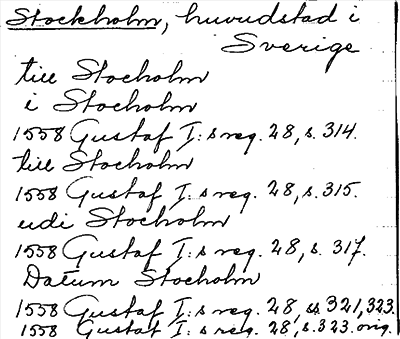 Stockholm, huvudstad i
Sverige
till Stocholm
i Stocholm
1558 Gustaf I:s reg. 28, s. 314.
till Stocholm
1558 Gustaf I:s reg. 28, s. 315.
udi Stocholm
1558 Gustaf I:s reg. 28, s. 317.
Datum Stocholm
1558 Gustaf I:s reg. 28, ss 321, 323.
1558 Gustaf I:s reg. 28, s. 323. orig.